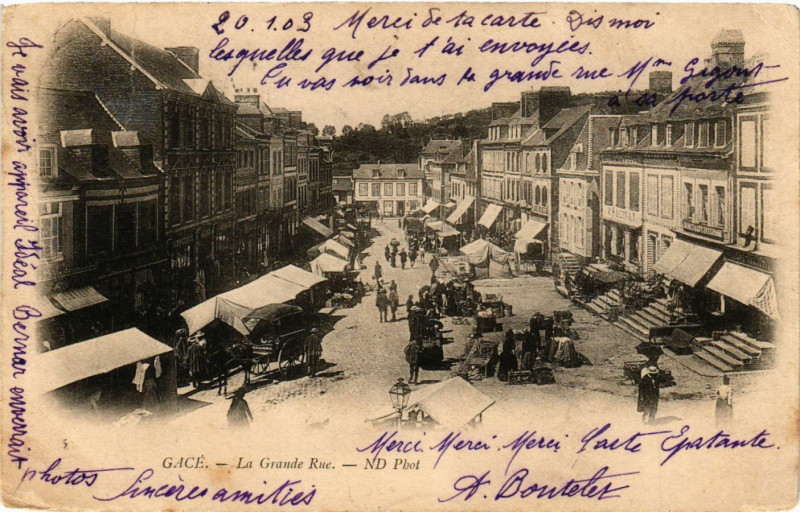 20.1.03 Merci de ta carte. Dis moi
lesquelles que je t'ai envoyées.
Tu vas voir dans la grande rue Mme Gigout
à sa porte
Je vais avoir appareil Idéal Bernar enverrait
photos
Merci Merci Merci Carte Epatante.
Sincères amitiés
A. Boutelet
GACÉ. – La Grande Rue. – ND Phot